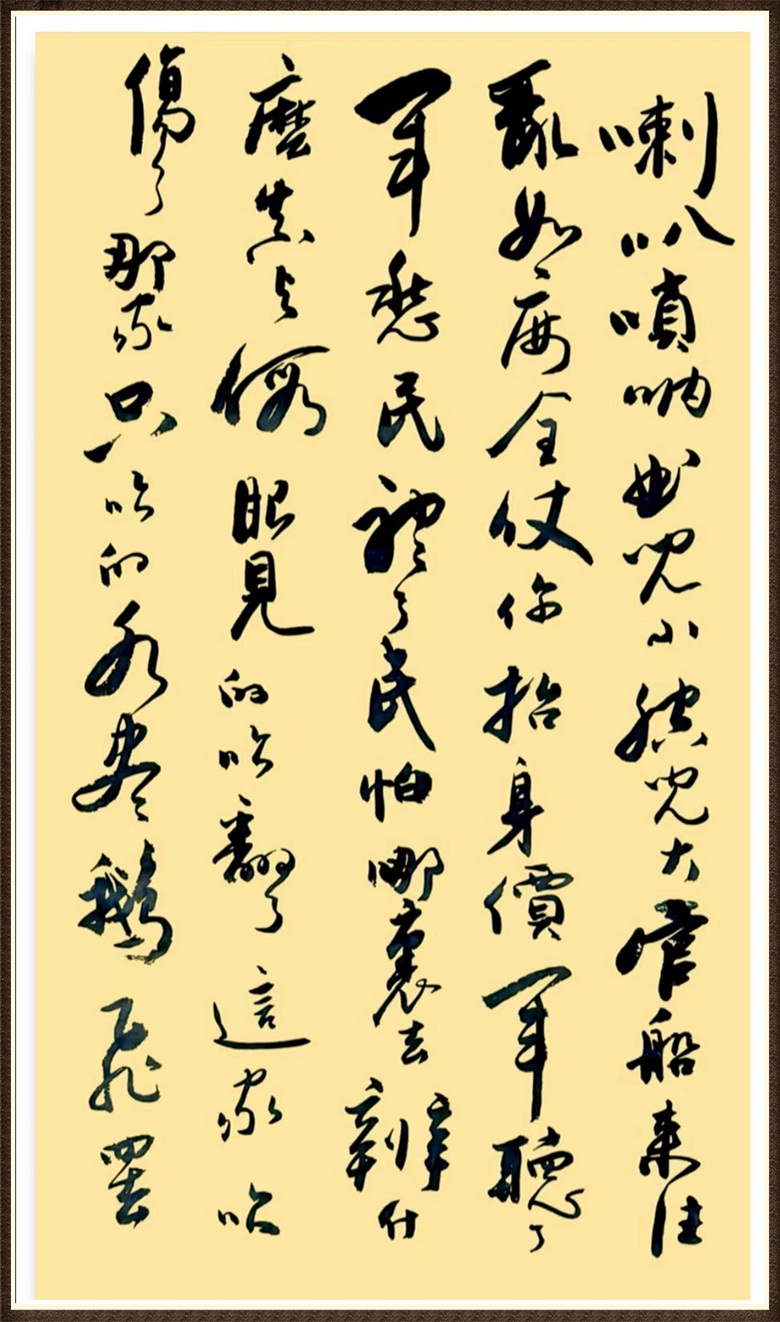 喇叭嗩吶曲兒小腔兒大官船来往
亂如麻全仗你抬身價軍聽了
軍愁民聽了民怕哪裏去辨什
麼真与假眼見的吹翻了這家吹
傷了那家只吹的水盡鵝飛罷